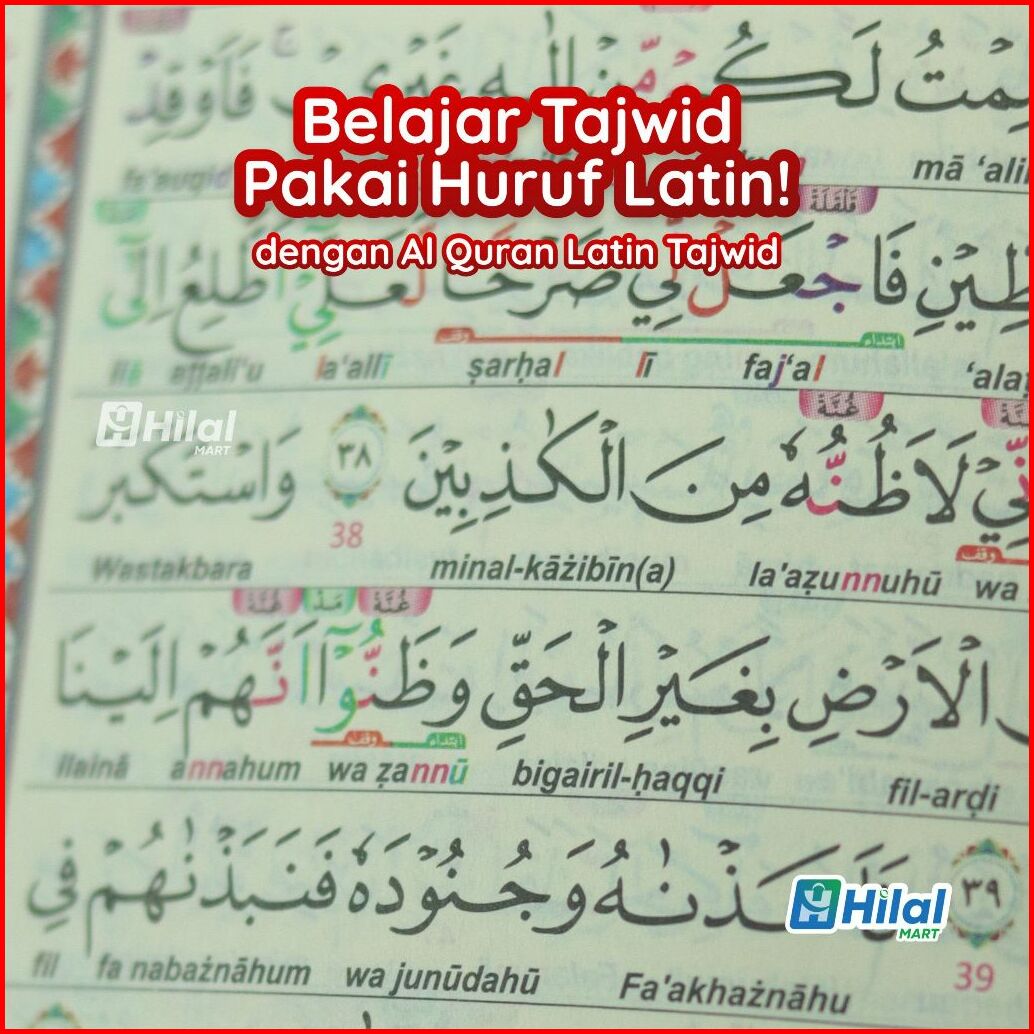 Belajar Tajwid
Pakai Huruf Latin!
dengan Al Quran Latin Tajwid
مَا عَلِمْتُ لَكُمْ مِّنْ اِلٰهٍ غَيْرِيْۚ فَاَوْقِدْ
mā ‘ali
fa'auqid
غُنَّة
قَلْقَلَة
فَاجْعَلْ لِّيْ صَرْحًا لَّعَلِّيْٓ اَطَّلِعُ اِلٰٓى
ابتداء وقف
‘alaṭ faj‘al lī ṣarḥal la'allī aṭṭali'u ilā
Hilal
MART
غُنَّة غُنَّة
لَاَظُنُّهٗ مِنَ الْكٰذِبِيْنَ ٣٨ وَاسْتَكْبَرَ
38
وقف
wa la'aẓunnuhū minal-kāżibīn(a) Wastakbara
غُنَّة مَدّ غُنَّة
الْاَرْضِ بِغَيْرِ الْحَقِّ وَظَنُّوْٓا اَنَّهُمْ اِلَيْنَا
ابتداء وقف
fil-arḍi bigairil-ḥaqqi wa ẓannū annahum ilainā
٣٩ وَجُنُوْدَهٗ فَنَبَذْنٰهُمْ فِى
Hilal
MART
39
Fa'akhażnāhu wa junūdahū fa nabażnāhum fil